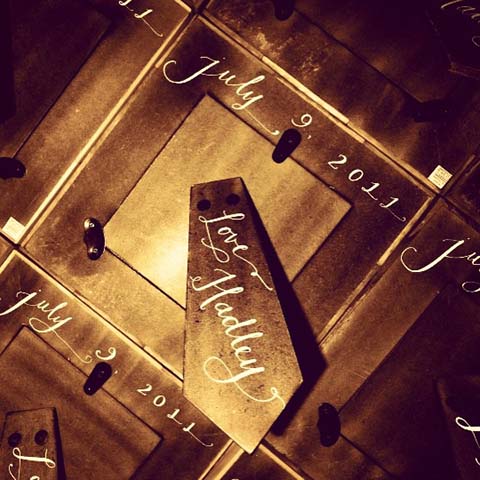 11
July 9, 2011
Love
Hadley
July
July 9, 2011
Lo